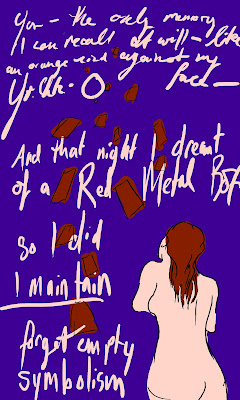 You - the only memory
I can recall at will - like
an orange against my
face -
And that night I dreamt
of a Red Metal Box
So I did
I maintain
forgot empty
symbolism